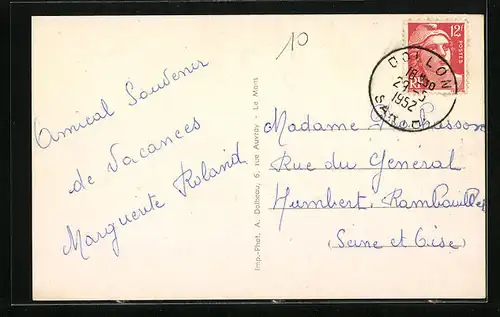 10
12F
POSTES
DOLLON
18H30
29-5
1952
SARTHE
Amical Souvenir
de Vacances
Marguerite Roland
Imp.-Phot. A. Dolbeau, 6, rue Auvray - Le Mans
Madame Chasson
Rue du Général
Humbert, Rambouillet
(Seine et Oise)